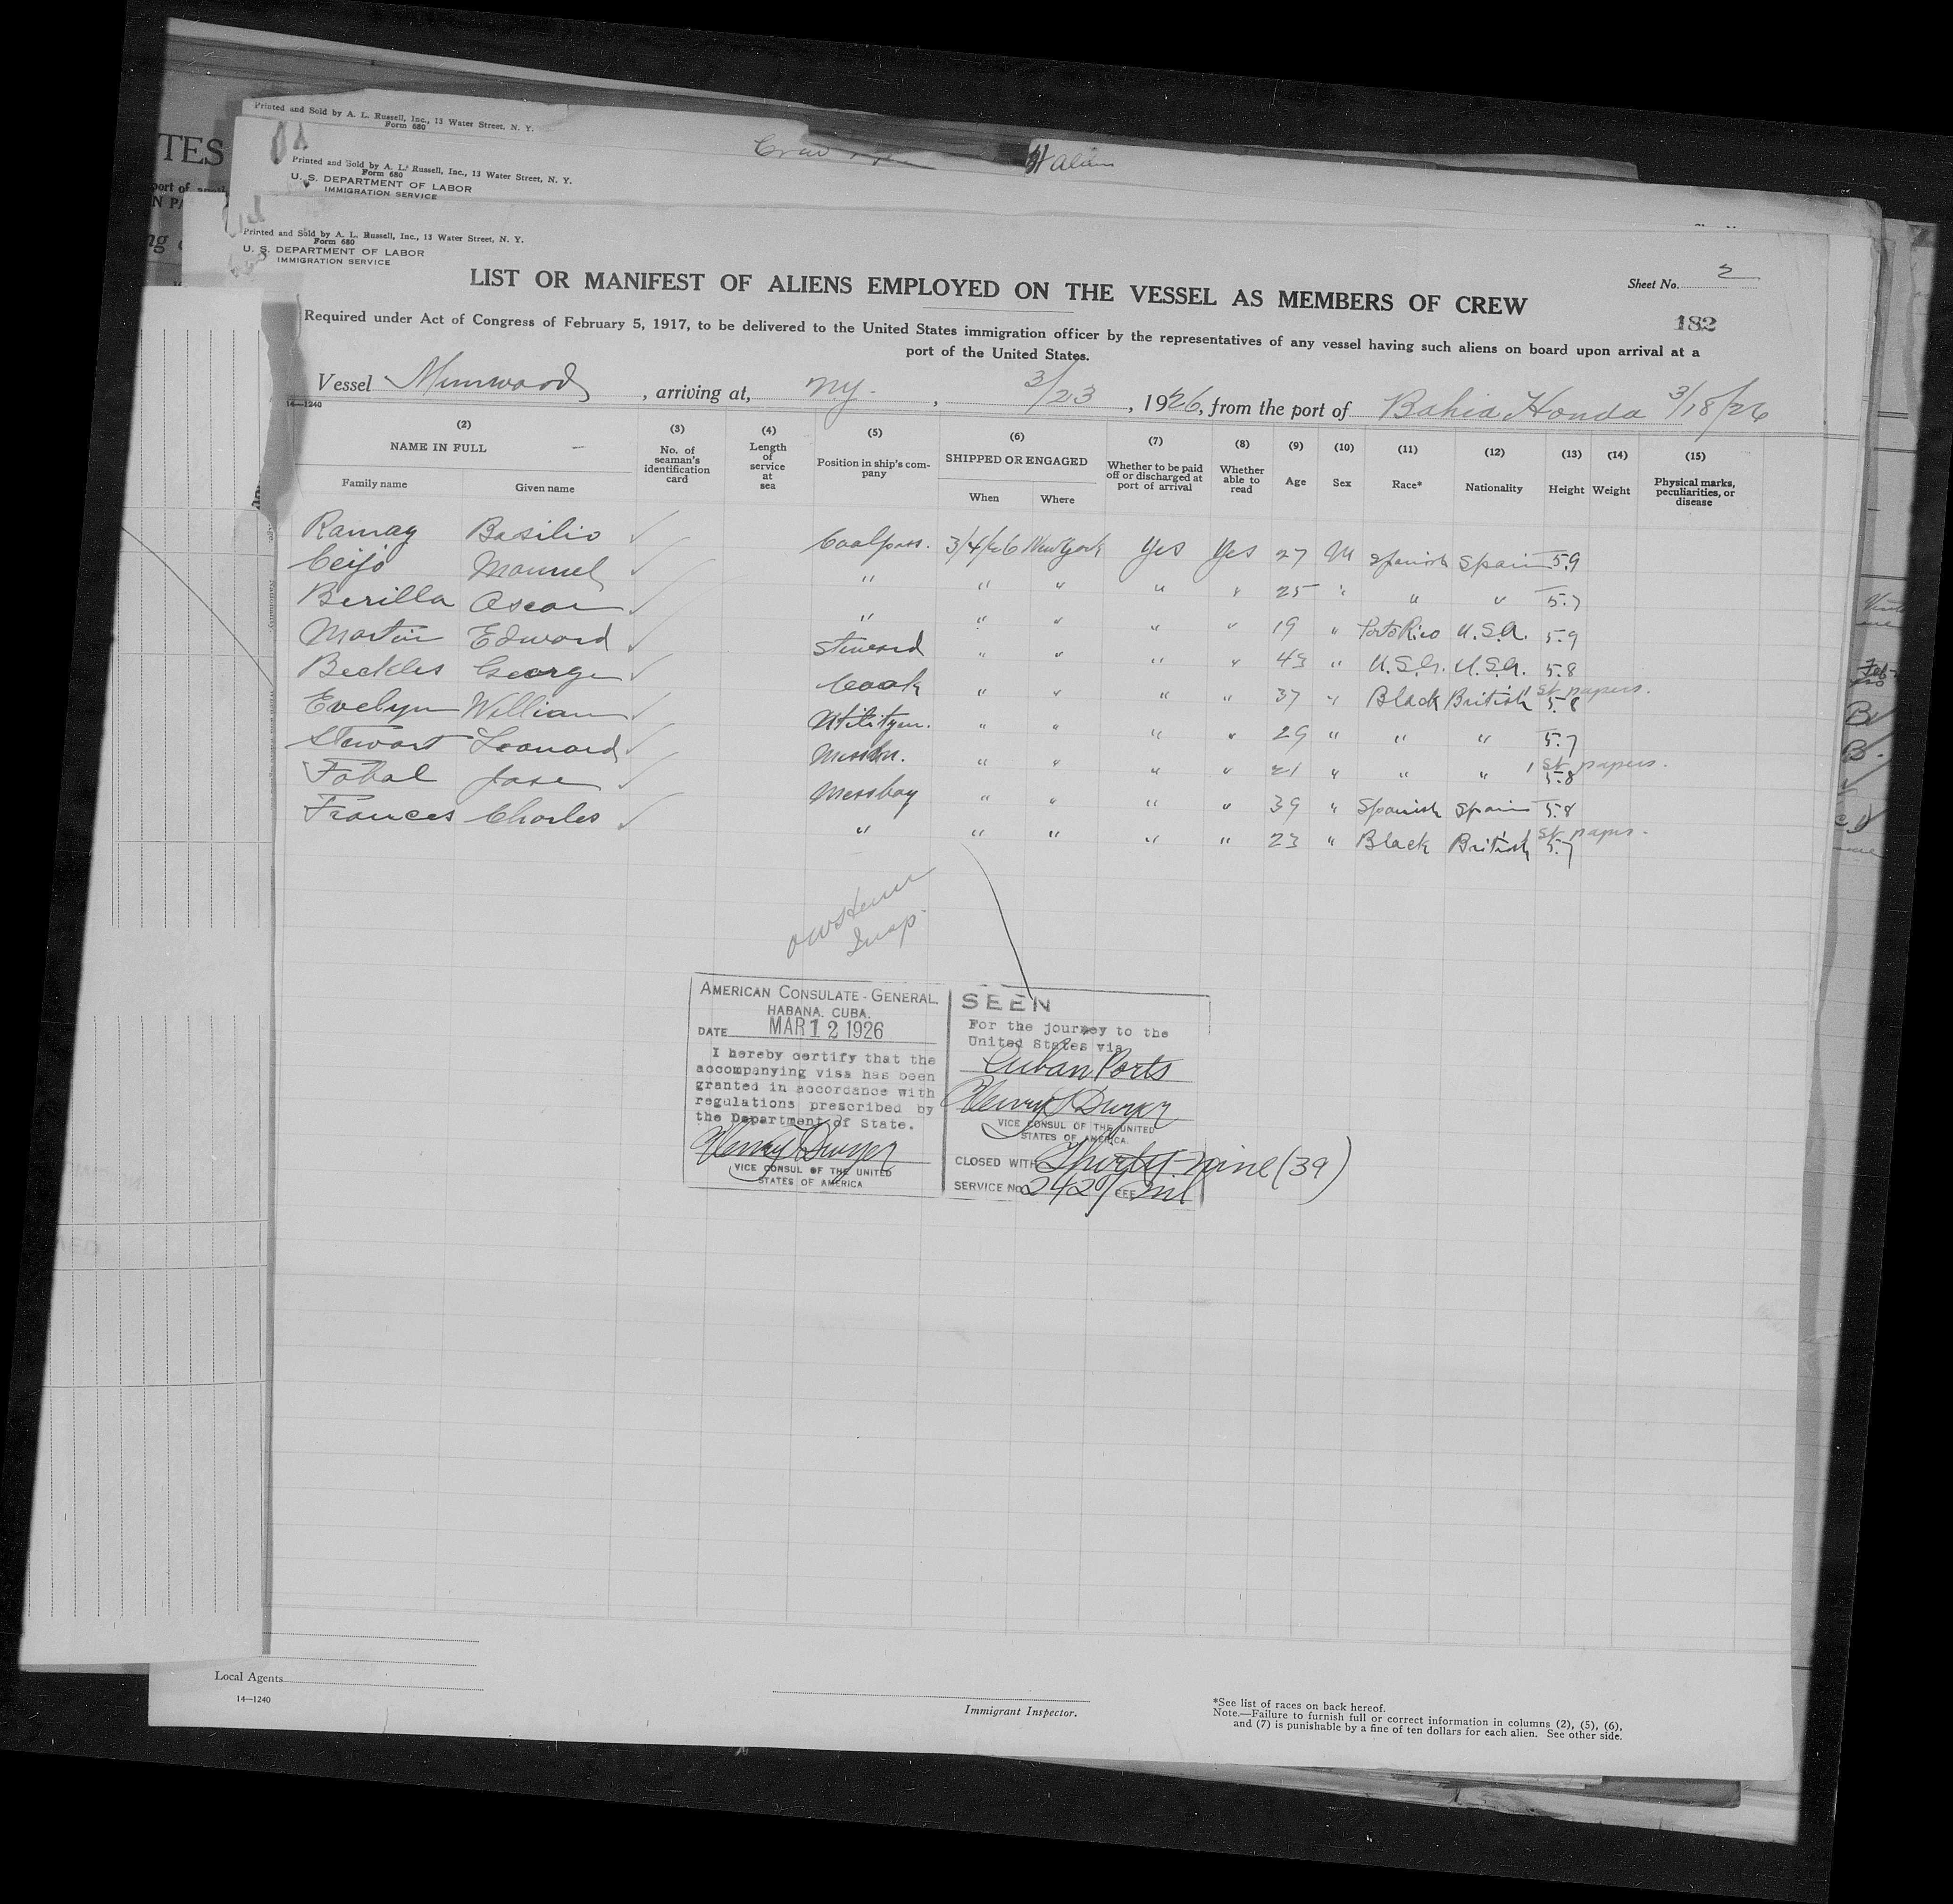 TES
Printed and Sold by A. L. Russell, Inc., 13 Water Street, N. Y.
Form 680
Printed and Sold by A. L. Russell, Inc., 13 Water Street, N. Y.
Form 680
U. S. DEPARTMENT OF LABOR
IMMIGRATION SERVICE
Printed and Sold by A. L. Russell, Inc., 13 Water Street, N. Y.
Form 680
U. S. DEPARTMENT OF LABOR
IMMIGRATION SERVICE
LIST OR MANIFEST OF ALIENS EMPLOYED ON THE VESSEL AS MEMBERS OF CREW
Sheet No. 2
182
Required under Act of Congress of February 5, 1917, to be delivered to the United States immigration officer by the representatives of any vessel having such aliens on board upon arrival at a
port of the United States.
Vessel Munwood, arriving at, NY., 3/23, 1926, from the port of Bahia Honda 3/18/26
14—1240
(2) (3) (4) (5) (6) (7) (8) (9) (10) (11) (12) (13) (14) (15)
NAME IN FULL No. of seaman's identification card Length of service at sea Position in ship's company SHIPPED OR ENGAGED Whether to be paid off or discharged at port of arrival Whether able to read Age Sex Race* Nationality Height Weight Physical marks, peculiarities, or disease
Family name Given name When Where
Ramay Basilio ✓ Coalpass. 3/4/26 New York Yes Yes 27 M Spanish Spain 5.9
Ceijo Manuel ✓ " " " " " 25 " " " 5.7
Berilla Oscar ✓ " " " " " 19 " Porto Rico U.S.A. 5.9
Martin Edward ✓ Steward " " " " 43 " U.S.A. U.S.A. 5.8
Beckles George ✓ Cook " " " " 37 " Black British 5.8 papers.
Evelyn William ✓ Utilitym. " " " " 29 " " " 5.7
Stewart Leonard ✓ Messm. " " " " 21 " " " 5.8 papers.
Fabal Jose ✓ Messboy " " " " 39 " Spanish Spain 5.8
Frances Charles ✓ " " " " " 23 " Black British 5.7
Insp.
AMERICAN CONSULATE-GENERAL.
HABANA. CUBA.
DATE MAR 12 1926
I hereby certify that the
accompanying visa has been
granted in accordance with
regulations prescribed by
the Department of State.
Henry T Dwyer
VICE CONSUL OF THE UNITED
STATES OF AMERICA
SEEN
For the journey to the
United States via
Cuban Ports
Henry T Dwyer
VICE CONSUL OF THE UNITED
STATES OF AMERICA.
CLOSED WITH Thirty-nine (39)
SERVICE No. 2429 FEE nil
Local Agents
14—1240
Immigrant Inspector.
*See list of races on back hereof.
Note.—Failure to furnish full or correct information in columns (2), (5), (6),
and (7) is punishable by a fine of ten dollars for each alien. See other side.